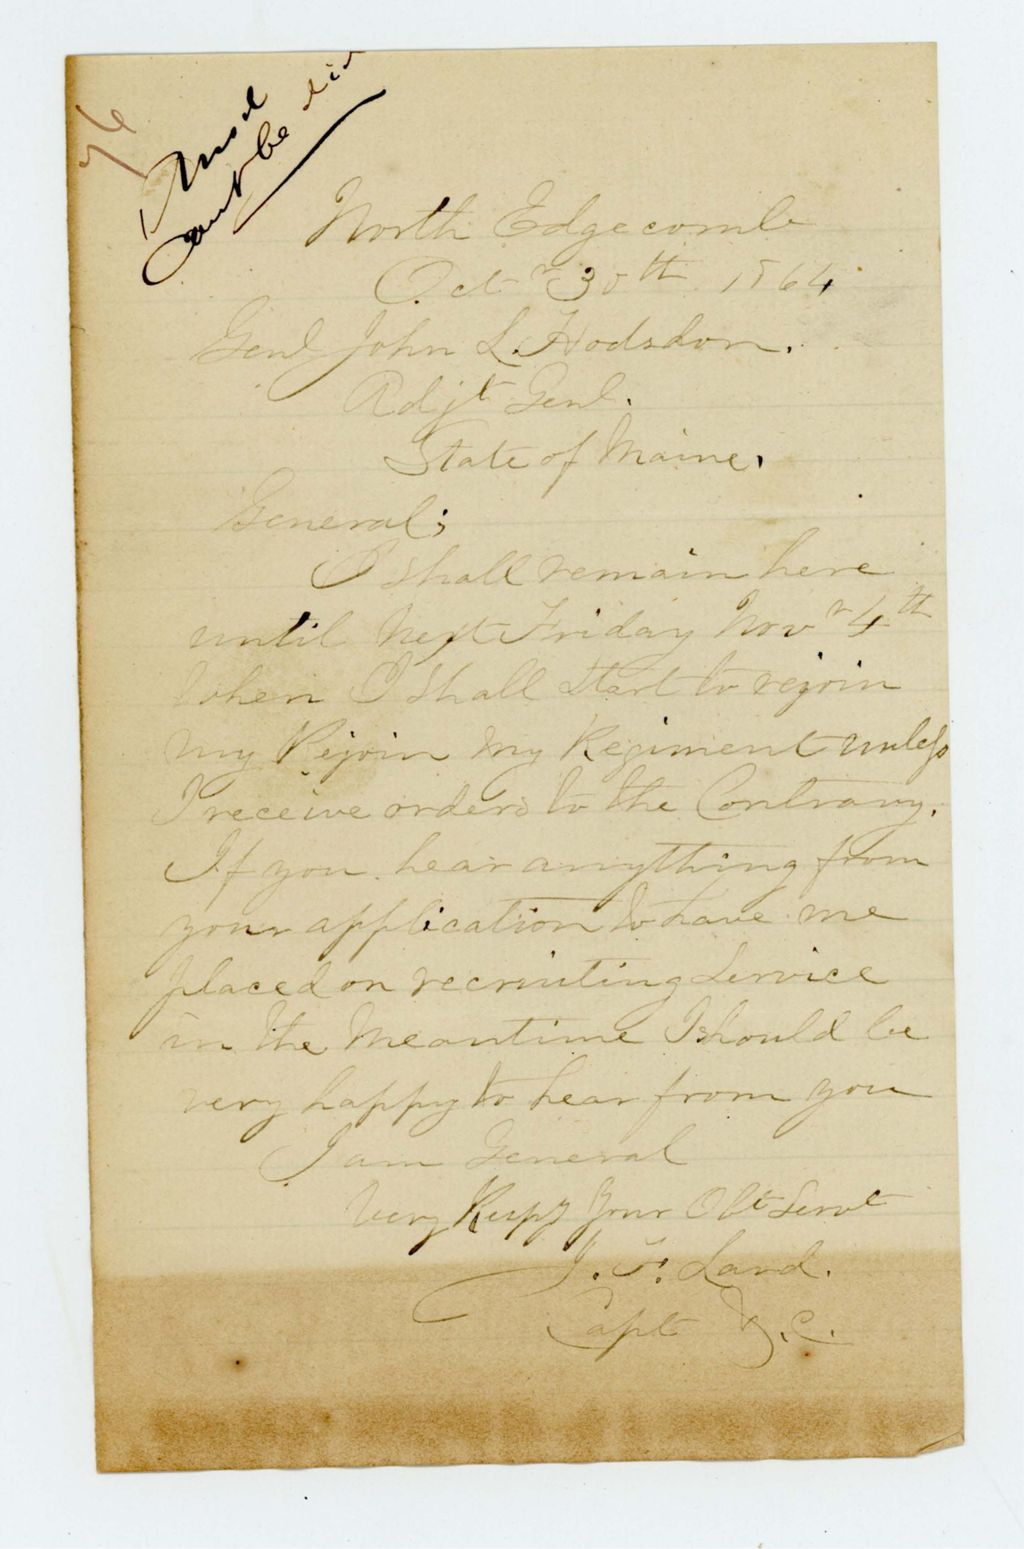 76
Ansd
cant be did
North Edgecomb
Octr 30th 1864
Genl John L. Hodsdon.
Adjt Genl.
State of Maine.
General;
I shall remain here
until Next Friday Novr 4th
When I shall start to rejoin
my Rejoin my Regiment unless
I receive orders to the Contrary.
If you hear anything from
your application to have me
placed on recruiting Service
in the Meantime I should be
very happy to hear from you
I am General
Very Respy Your Obt Servt
J. F. Land.
Capt &.c.